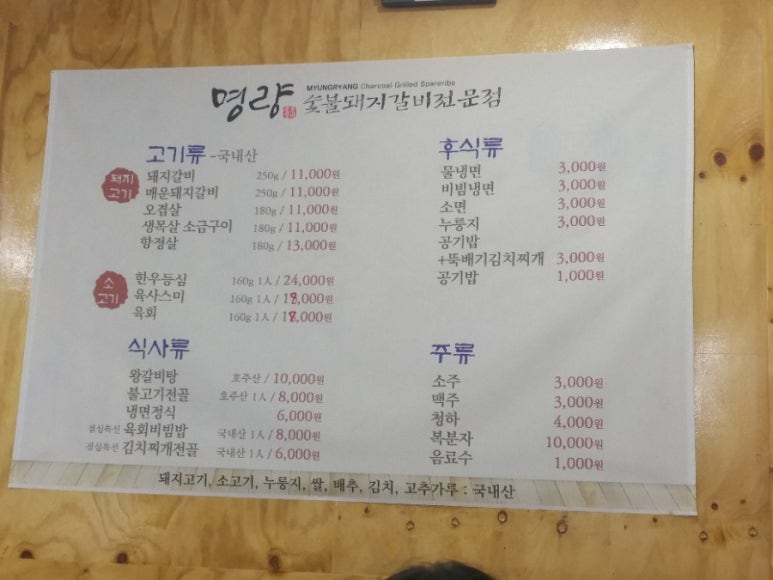 명량
MYUNGRYANG Charcoal Grilled Spareribs
숯불돼지갈비전문점
고기류 -국내산
돼지
고기
돼지갈비 250g / 11,000원
매운돼지갈비 250g / 11,000원
오겹살 180g / 11,000원
생목살 소금구이 180g / 11,000원
항정살 180g / 13,000원
소
고기
한우등심 160g 1人 / 24,000원
육사스미 160g 1人 / 18,000원
육회 160g 1人 / 18,000원
식사류
왕갈비탕 호주산 / 10,000원
불고기전골 호주산 1人 / 8,000원
냉면정식 6,000원
점심특선 육회비빔밥 국내산 1人 / 8,000원
점심특선 김치찌개전골 국내산 1人 / 6,000원
후식류
물냉면 3,000원
비빔냉면 3,000원
소면 3,000원
누룽지 3,000원
공기밥
+뚝배기김치찌개 3,000원
공기밥 1,000원
주류
소주 3,000원
맥주 3,000원
청하 4,000원
복분자 10,000원
음료수 1,000원
돼지고기, 소고기, 누룽지, 쌀, 배추, 김치, 고추가루 : 국내산